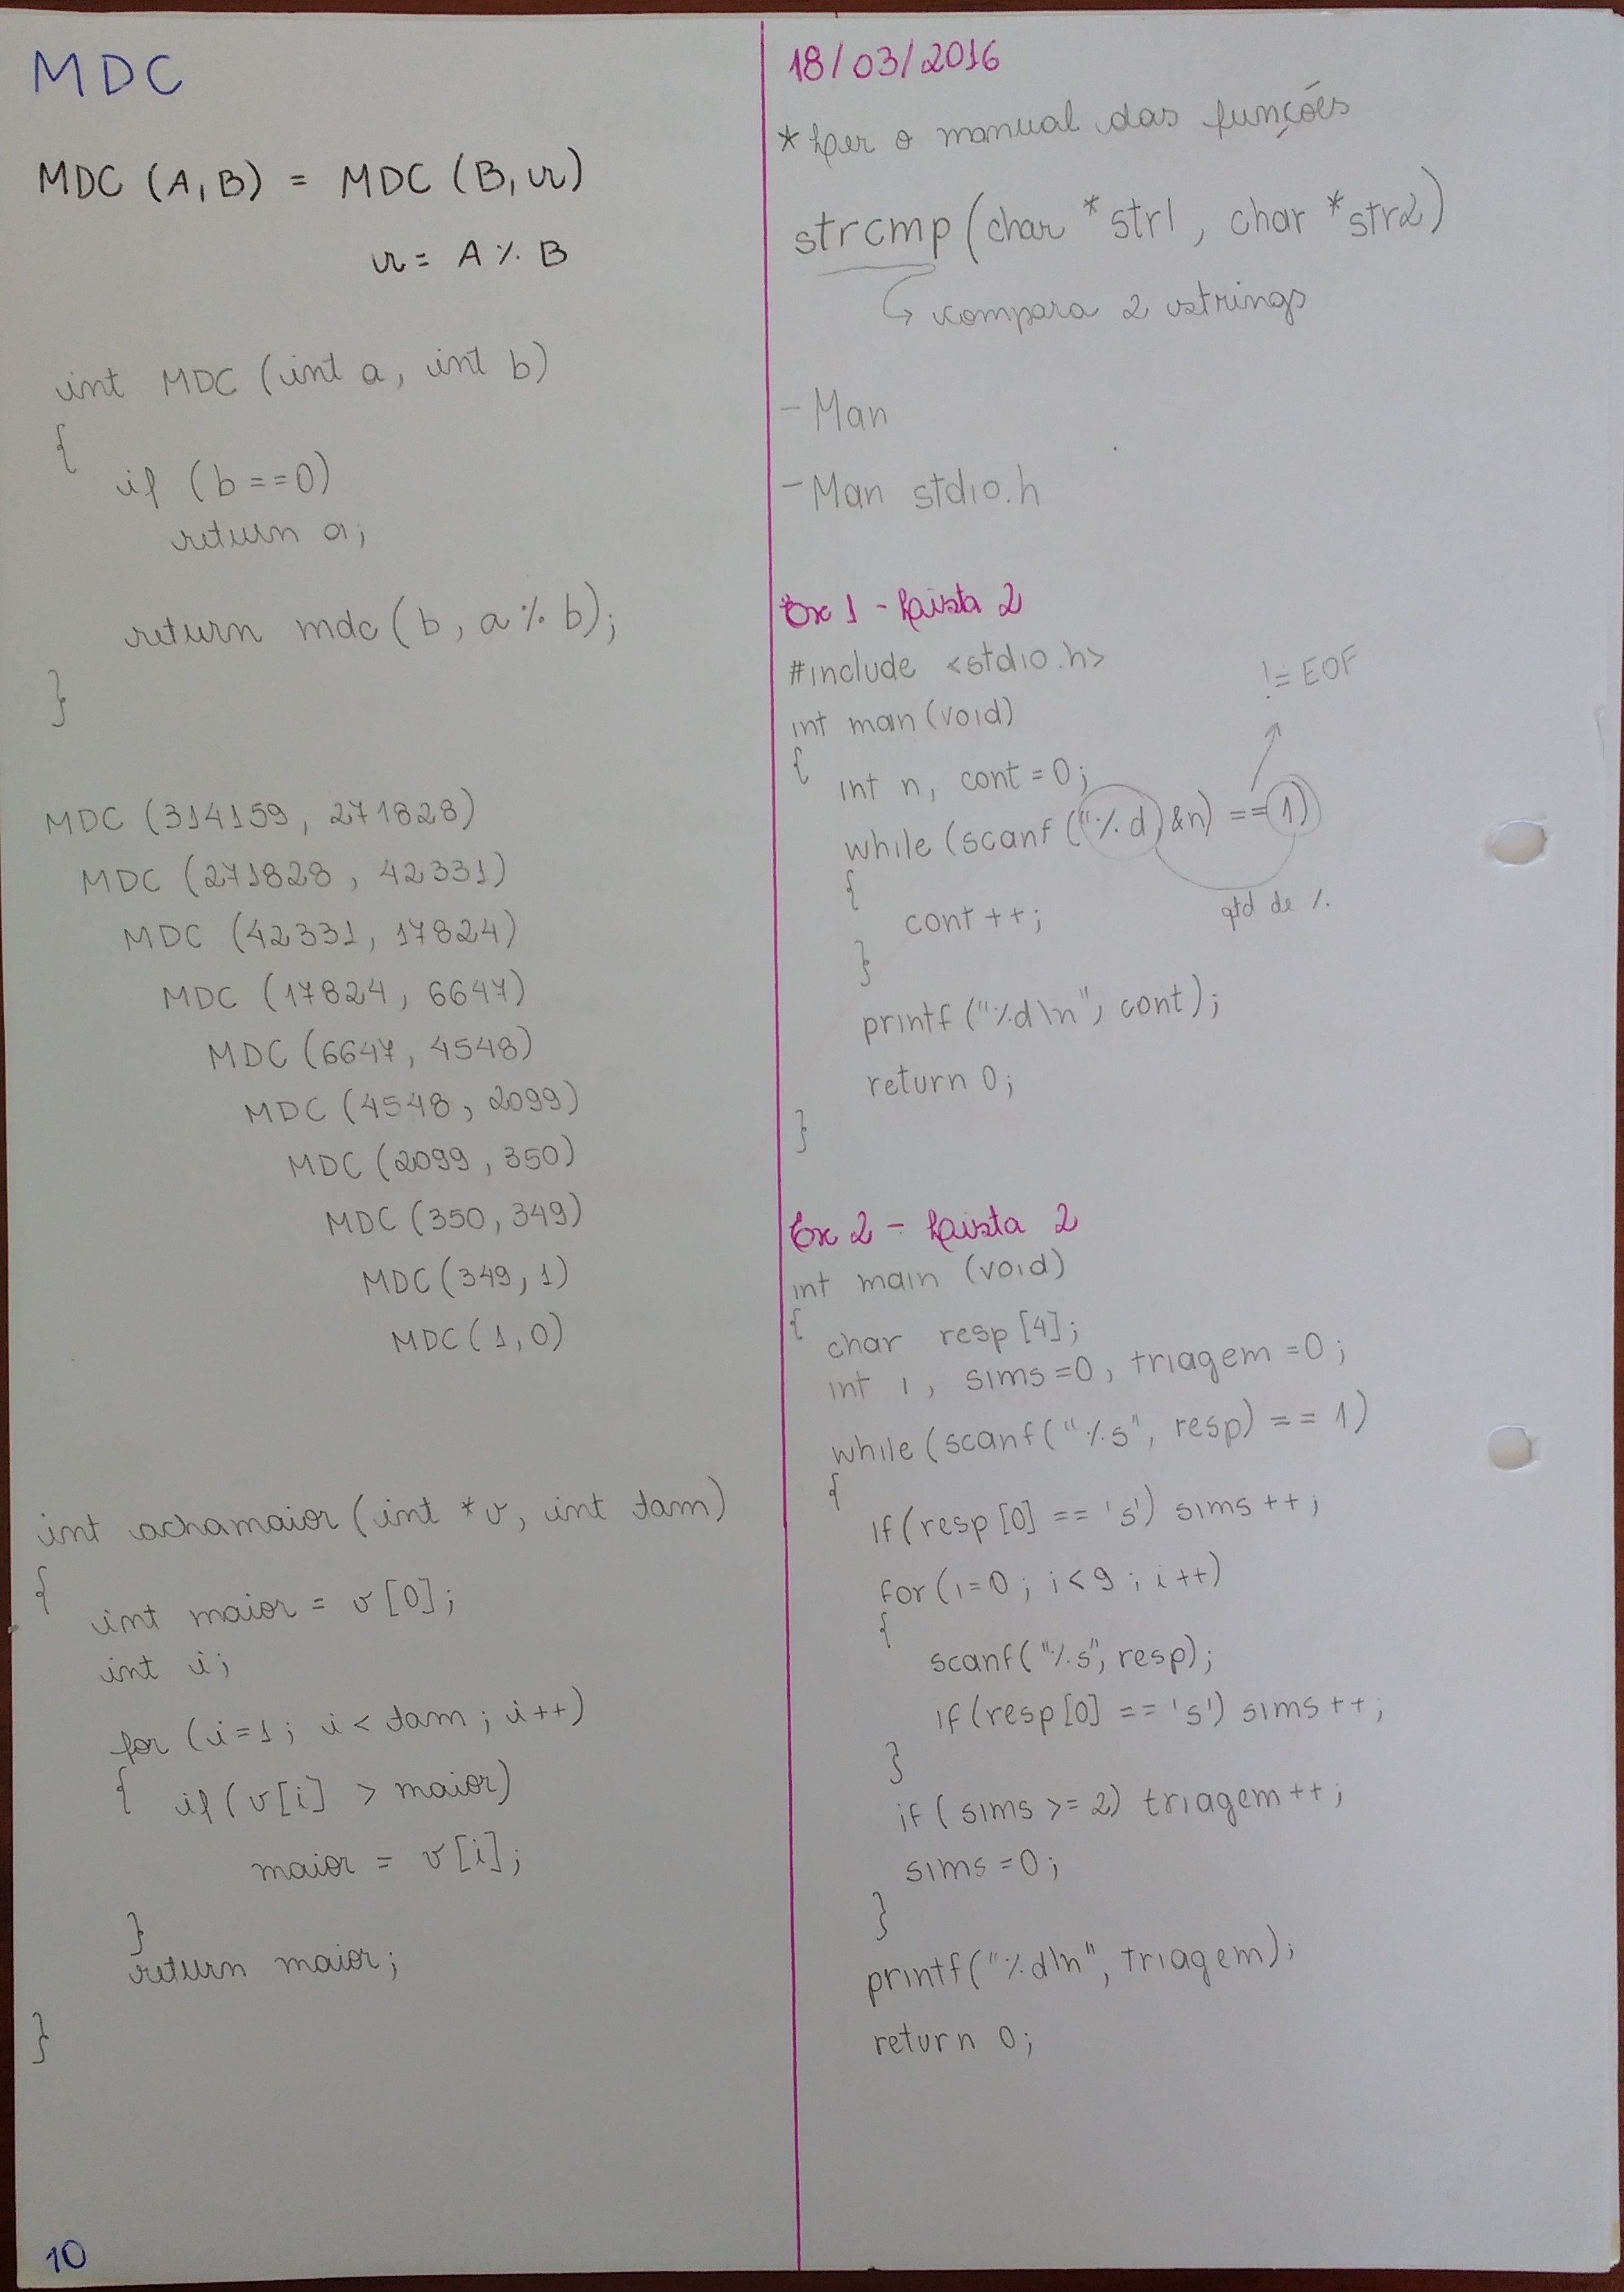 MDC
MDC (A, B) = MDC (B, r)
r = A % B
int MDC (int a, int b)
{
if (b == 0)
return a;
return mdc (b, a % b);
}
MDC (314159, 271828)
MDC (271828, 42331)
MDC (42331, 17824)
MDC (17824, 6647)
MDC (6647, 4548)
MDC (4548, 2099)
MDC (2099, 350)
MDC (350, 349)
MDC (349, 1)
MDC (1, 0)
int achamaior (int *v, int tam)
{
int maior = v[0];
int i;
for (i=1; i < tam; i++)
{ if (v[i] > maior)
maior = v[i];
}
return maior;
}
10
18/03/2016
* Ler o manual das funções
strcmp (char *str1, char *str2)
↳ compara 2 strings
- Man
- Man stdio.h
Ex 1 - Lista 2
#include <stdio.h>
!= EOF
int main (void)
{ int n, cont = 0;
while (scanf ("%d, &n) == 1)
{
qtd de %
cont ++;
}
printf ("%d\n", cont);
return 0;
}
Ex 2 - Lista 2
int main (void)
{ char resp [4];
int i, sims = 0, triagem = 0;
while (scanf ("%s", resp) == 1)
{
if (resp [0] == 's') sims ++;
for (i=0; i < 9; i++)
{
scanf ("%s", resp);
if (resp [0] == 's') sims ++;
}
if (sims >= 2) triagem ++;
sims = 0;
}
printf ("%d\n", triagem);
return 0;